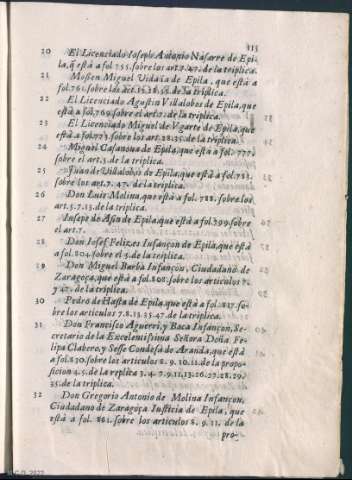 115
20 El Licenciado Ioseph Antonio Nasarre de Epi-
la, q̃ està a fol. 755. sobre los art. 7. 47. de la triplica.
21 Mossen Miguel Vidaña de Epila, que està a
fol. 761. sobre los act. 15. 28. 35. de la triplica.
22 El Licenciado Agustin Villalobos de Epila, que
està a fol. 769. sobre el art. 7. de la triplica.
23 El Licenciado Miguel de Vgarte de Epila, que
està a fol. 773. sobre los art. 28. 35. de la triplica.
24 Miguel Casanoua de Epila, que està a fol. 777.
sobre el art. 5. de la triplica.
25 Juan de Villalobos de Epila, que està a fol. 783.
sobre los art. 7. 47. de la triplica.
26 Don Luis Molina, que està a fol. 788. sobre los
art. 5. 7. 13. de la triplica.
27 Insepe de Asin de Epila, que està a fol. 799. sobre
el art. 7.
28 Don Iosef Felizes Infançon de Epila, que està
a fol. 804. sobre el 5. de la triplica.
29 Don Miguel Barba Infançon, Ciudadano de
Zaragoça, que està a fol. 808. sobre los articulos
y 47. de la triplica.
30 Pedro de Hasta de Epila, que està a fol. 817. so-
bre los articulos 7. 8. 13. 35. 47. de la triplica.
31 Don Francisco Aguerri, y Baca Infançon, Se-
cretario de la Excelentissima Señora Doña Fe-
lipa Clabero, y Sesse Condesa de Aranda, que està
a fol. 830. sobre los articulos 8. 9. 10. 11. de la propo-
sicion 4. 5. de la replica 3. 4. 7. 9. 11. 13. 26. 27. 28. 29.
35. de la triplica.
32 Don Gregorio Antonio de Molina Infançon,
Ciudadano de Zaragoça Iusticia de Epila, que
està a fol. 861. sobre los articulos 8. 9. 11. de la
pro-